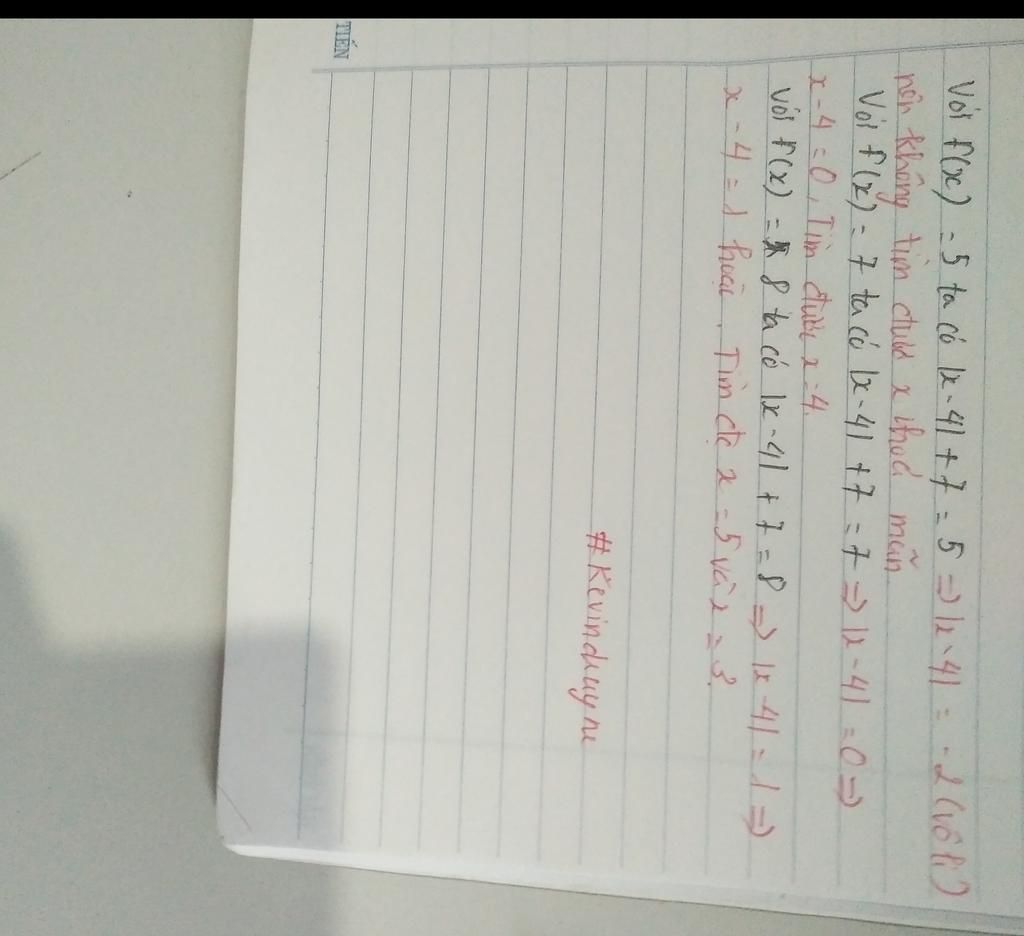 Với f(x) = 5 ta có |x-4| + 7 = 5 => |x-4| = -2 (vô lí)
nên không tìm được x thoả mãn
Với f(x) = 7 ta có |x-4| +7 = 7 => |x-4| = 0 =>
x-4=0, Tìm được x=4.
Với f(x) = 8 ta có |x-4| + 7 = 8 => |x-4| = 1 =>
x-4=1 hoặc . Tìm đc x = 5 và x = 3.
#Kevinduy
TIẾN